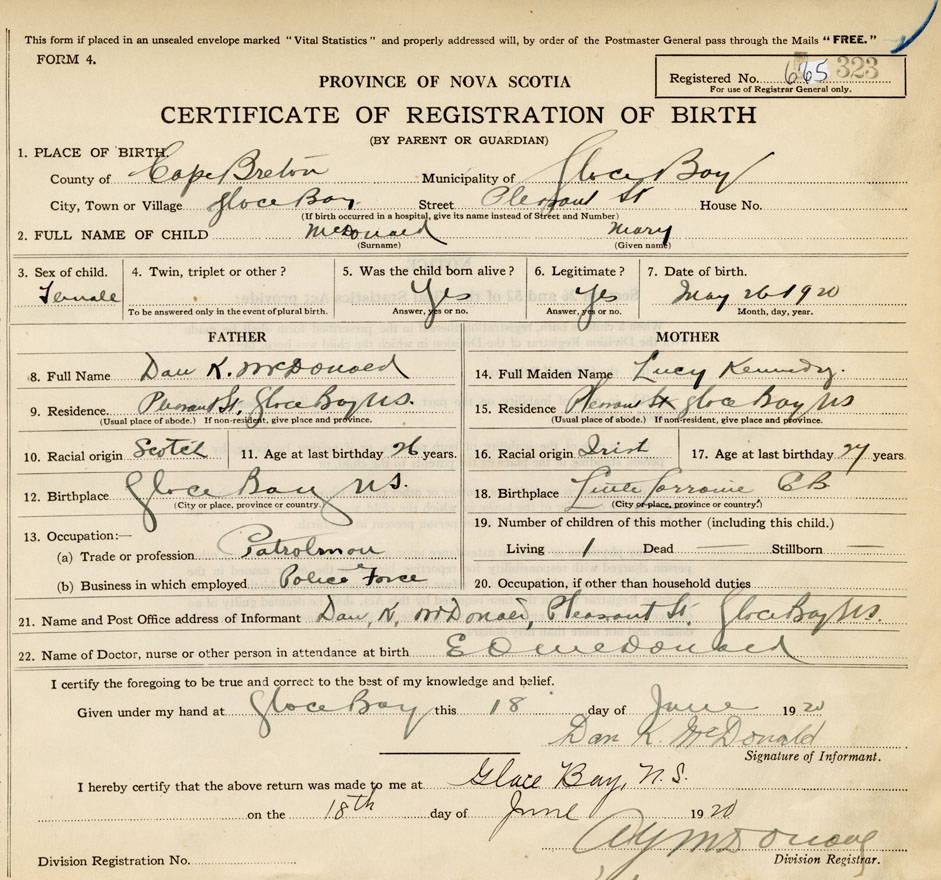 This form if placed in an unsealed envelope marked "Vital Statistics" and properly addressed will, by order of the Postmaster General pass through the Mails "FREE."
FORM 4.
Registered No. 665 323
For use of Registrar General only.
PROVINCE OF NOVA SCOTIA
CERTIFICATE OF REGISTRATION OF BIRTH
(BY PARENT OR GUARDIAN)
1. PLACE OF BIRTH
County of Cape Breton Municipality of Glace Bay
City, Town or Village Glace Bay Street Pleasant St House No.
(If birth occurred in a hospital, give its name instead of Street and Number)
2. FULL NAME OF CHILD McDonald Mary
(Surname) (Given name)
3. Sex of child. 4. Twin, triplet or other? 5. Was the child born alive? 6. Legitimate? 7. Date of birth.
Female Yes Yes May 26 1920
To be answered only in the event of plural birth. Answer, yes or no. Answer, yes or no. Month, day, year.
FATHER MOTHER
8. Full Name Dan K. McDonald 14. Full Maiden Name Lucy Kennedy.
9. Residence. Pleasant St. Glace Bay NS. 15. Residence Pleasant St Glace Bay NS
(Usual place of abode.) If non-resident, give place and province. (Usual place of abode.) If non-resident, give place and province.
10. Racial origin Scotch 11. Age at last birthday 26 years. 16. Racial origin Irish 17. Age at last birthday 27 years
12. Birthplace Glace Bay NS. 18. Birthplace Little Lorraine CB
(City or place, province or country.) (City or place, province or country.)
13. Occupation:— 19. Number of children of this mother (including this child.)
(a) Trade or profession Patrolman Living 1 Dead — Stillborn —
(b) Business in which employed Police Force 20. Occupation, if other than household duties
21. Name and Post Office address of Informant Dan, K, McDonald, Pleasant St. Glace Bay NS.
22. Name of Doctor, nurse or other person in attendance at birth E O McDonald
I certify the foregoing to be true and correct to the best of my knowledge and belief.
Given under my hand at Glace Bay this 18 day of June 1920
Dan K. McDonald
Signature of Informant.
I hereby certify that the above return was made to me at Glace Bay, N.S.
on the 18th day of June 1920
Division Registration No. Division Registrar.